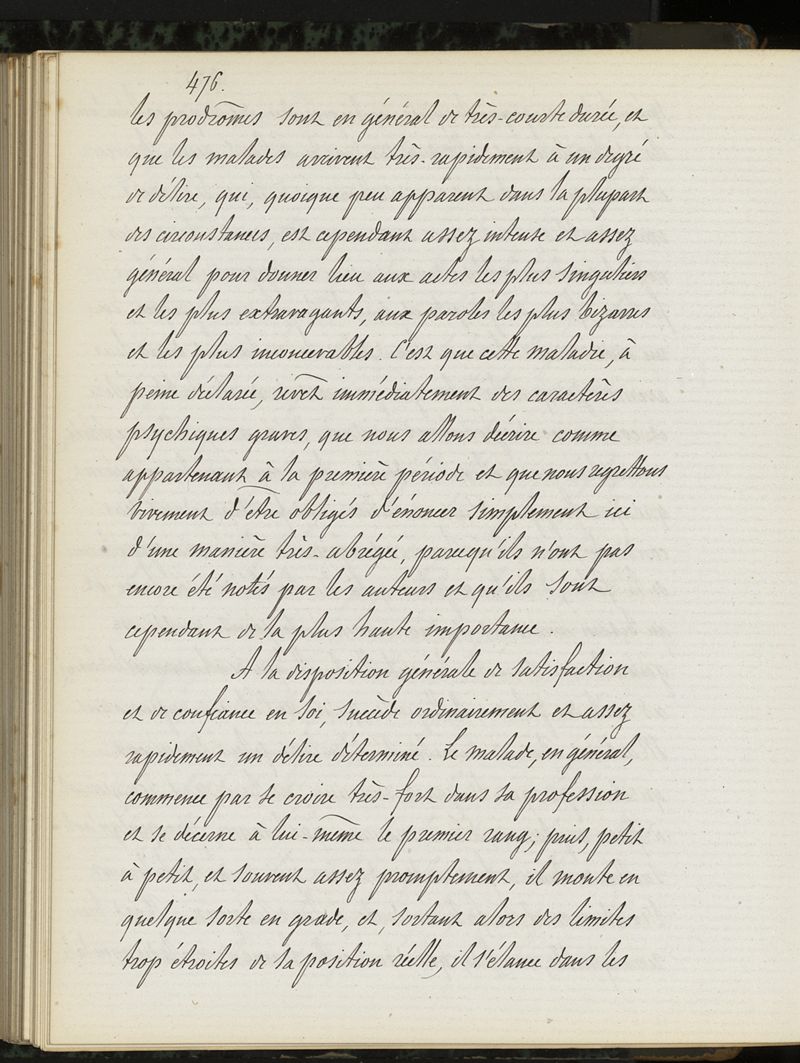 476.
les prodrômes sont en général de très-courte durée, et
que les malades arrivent très-rapidement à un degré
de délire, qui, quoique peu apparent dans la plupart
des circonstances, est cependant assez intense et assez
général pour donner lieu aux actes les plus singuliers
et les plus extravagants, aux paroles les plus bizarres
et les plus inconcevables. C'est que cette maladie, à
peine déclarée, revêt immédiatement des caractères
psychiques graves, que nous allons décrire comme
appartenant à la première période et que nous regrettons
vivement d'être obligés d'énoncer simplement ici
d'une manière très-abrégée, parcequ'ils n'ont pas
encore été notés par les auteurs et qu'ils sont
cependant de la plus haute importance.
A la disposition générale de satisfaction
et de confiance en soi, succède ordinairement et assez
rapidement un délire déterminé. Le malade, en général,
commence par se croire très-fort dans sa profession
et se décerne à lui-même le premier rang; puis, petit
à petit, et souvent assez promptement, il monte en
quelque sorte en grade, et, sortant alors des limites
trop étroites de sa position réelle, il s'élance dans les